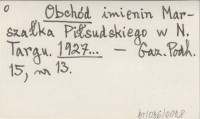 Obchód imienin Mar-
szałka Piłsudskiego w N.
Targu. 1927... — Gaz. Podh.
15, nr 13.